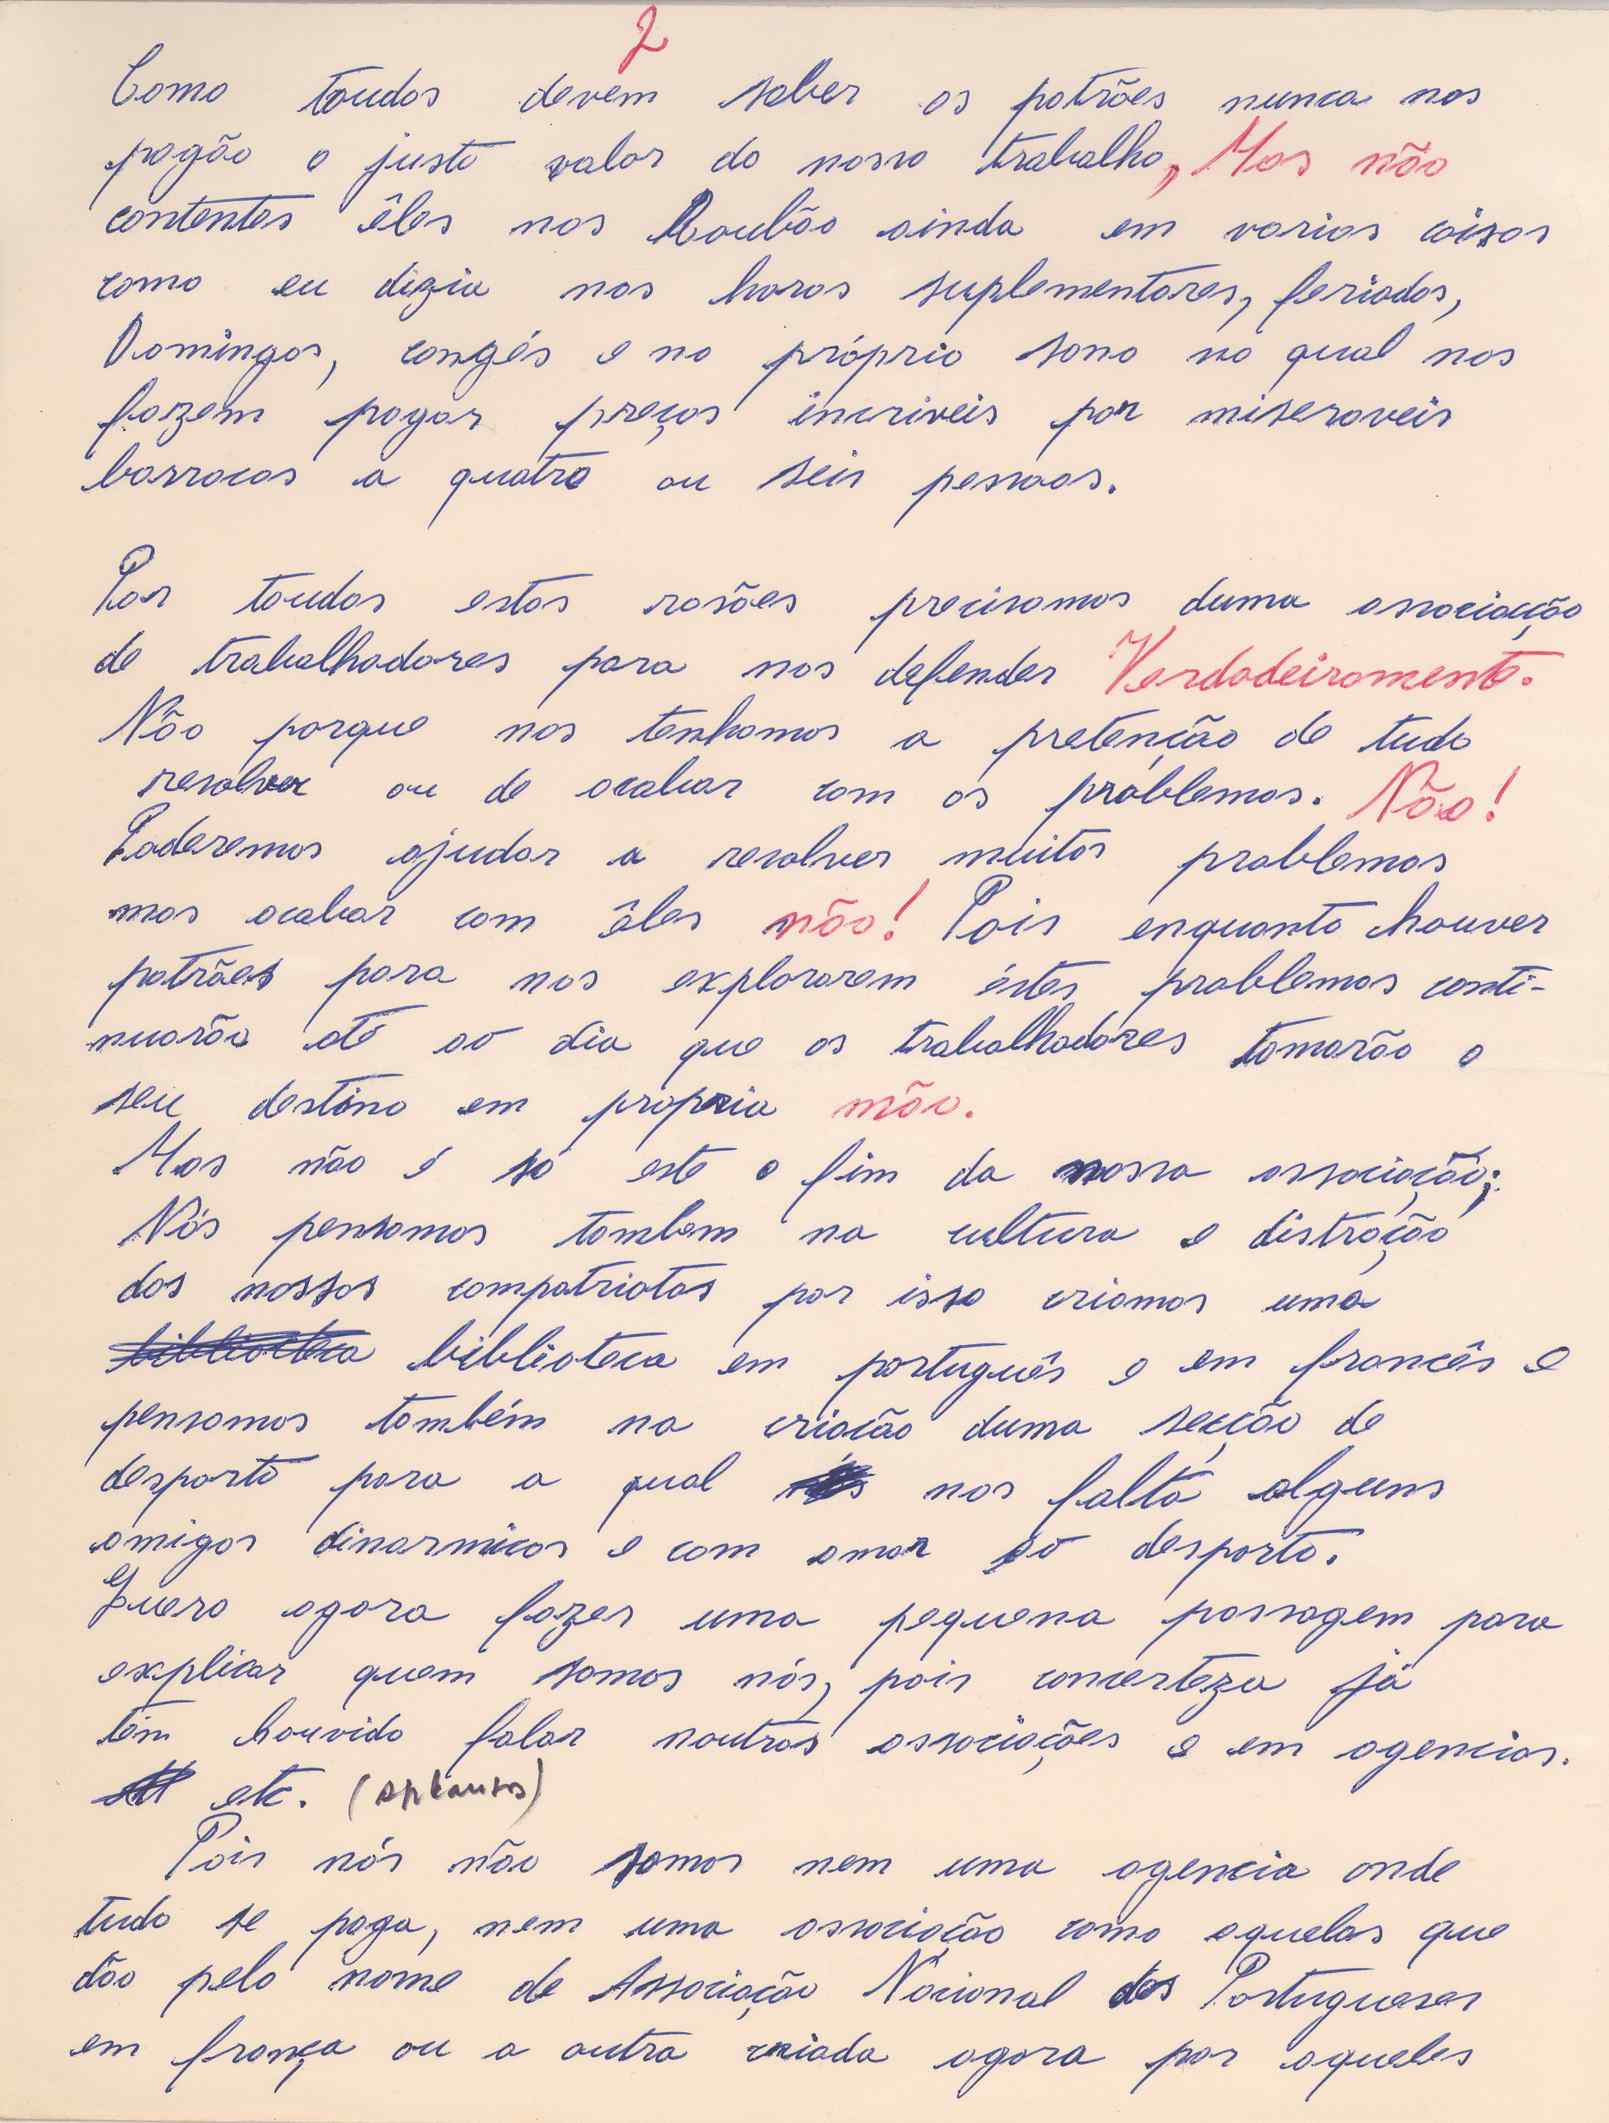 2
Como toudos devem saber os patrões nunca nos
pagão o justo valor do nosso trabalho, Mas não
contentes êles nos Roubão ainda em varias coisas
como eu dizia nas horas suplementares, feriados,
Domingos, congés e no próprio sono no qual nos
fazem pagar preços incriveis por miseraveis
barracas a quatro ou seis pessoas.
Por toudas estas rasões precisamos duma associacção
de trabalhadores para nos defender Verdadeiramente.
Não porque nos tenhamos a pretenção de tudo
resolver ou de acabar com os próblemas. Não!
Poderemos ajudar a resolver muitos problemas
mas acabar com êles não! Pois enquanto houver
patrões para nos explorarem éstes problemas conti-
nuarão até ao dia que os trabalhadores tomarão o
seu destino em propria mão.
Mas não é só este o fim da nossa associação;
Nós pensamos tambem na cultura e distração
dos nossos compatriotas por isso criamos uma
biblioteca em português e em francês e
pensamos também na criacão duma secção de
desporto para a qual nos falta alguns
amigos dinarmicos e com amor ao desporto.
Quero agora fazer uma pequena passagem para
explicar quem somos nós, pois concerteza já
têm houvido falar noutras associações e em agencias.
etc. (aplausos)
Pois nós não somos nem uma agencia onde
tudo se paga, nem uma associação como aquelas que
dão pelo nome de Associação Nacional dos Portugueses
em frança ou a outra criada agora por aqueles